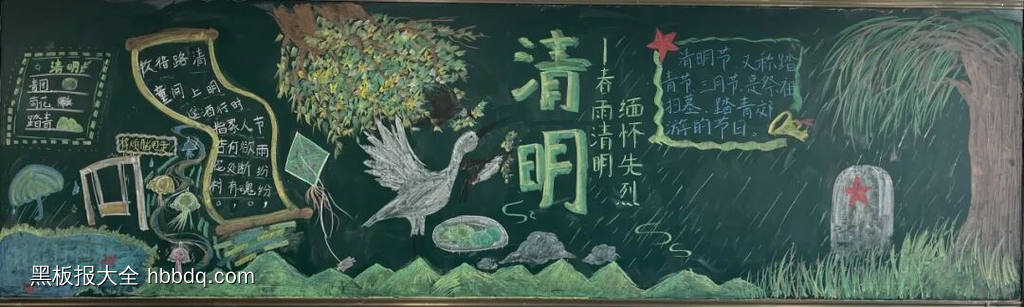 清明
青团
踏青
清明时节雨纷纷，
路上行人欲断魂。
借问酒家何处有，
牧童遥指杏花村。
清明
—春雨清明
缅怀先烈
清明节，又称踏
青节、三月节，是祭祖
扫墓、踏青郊
游的节日。
黑板报大全 hbbdq.com